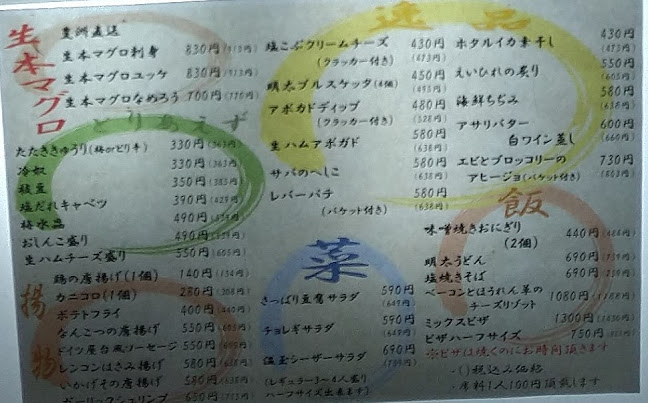 生本マグロ
豊洲直送
生本マグロ刺身 830円(913円)
生本マグロユッケ 830円(913円)
生本マグロなめろう 700円(770円)
とりあえず
たたききゅうり(梅orピリ辛) 330円(363円)
冷奴 330円(363円)
枝豆 350円(385円)
塩だれキャベツ 390円(429円)
梅水晶 490円(539円)
おしんこ盛り 490円(539円)
生ハムチーズ盛り 550円(605円)
揚物
鶏の唐揚げ(1個) 140円(154円)
カニコロ(1個) 280円(308円)
ポテトフライ 400円(440円)
なんこつの唐揚げ 550円(605円)
ドイツ屋台風ソーセージ 550円(605円)
レンコンはさみ揚げ 580円(638円)
いかげその唐揚げ 580円(638円)
ガーリックシュリンプ
逸品
塩こぶクリームチーズ 430円
(クラッカー付き) (473円)
明太ブルスケッタ(4個) 450円
(495円)
アボカドディップ 480円
(クラッカー付き) (528円)
生ハムアボガド 580円
(638円)
サバのへしこ 580円
(638円)
レバーパテ 580円
(バケット付き) (638円)
ホタルイカ素干し 430円
(473円)
えいひれの炙り 550円
(605円)
海鮮ちぢみ 580円
(638円)
アサリバター 600円
白ワイン蒸し (660円)
エビとブロッコリーの 730円
アヒージョ(バケット付き) (803円)
菜
さっぱり豆腐サラダ 590円
(649円)
チョレギサラダ 590円
(649円)
温玉シーザーサラダ 690円
(759円)
(レギュラー3〜4人盛り
ハーフサイズ出来ます)
飯
味噌焼きおにぎり 440円
(2個)
明太うどん 690円
塩焼きそば 690円
ベーコンとほうれん草の 1080円
チーズリゾット
ミックスピザ 1300円
ピザハーフサイズ 750円
※ピザは焼くのにお時間頂きます
-()税込み価格
・席料1人100円頂戴します